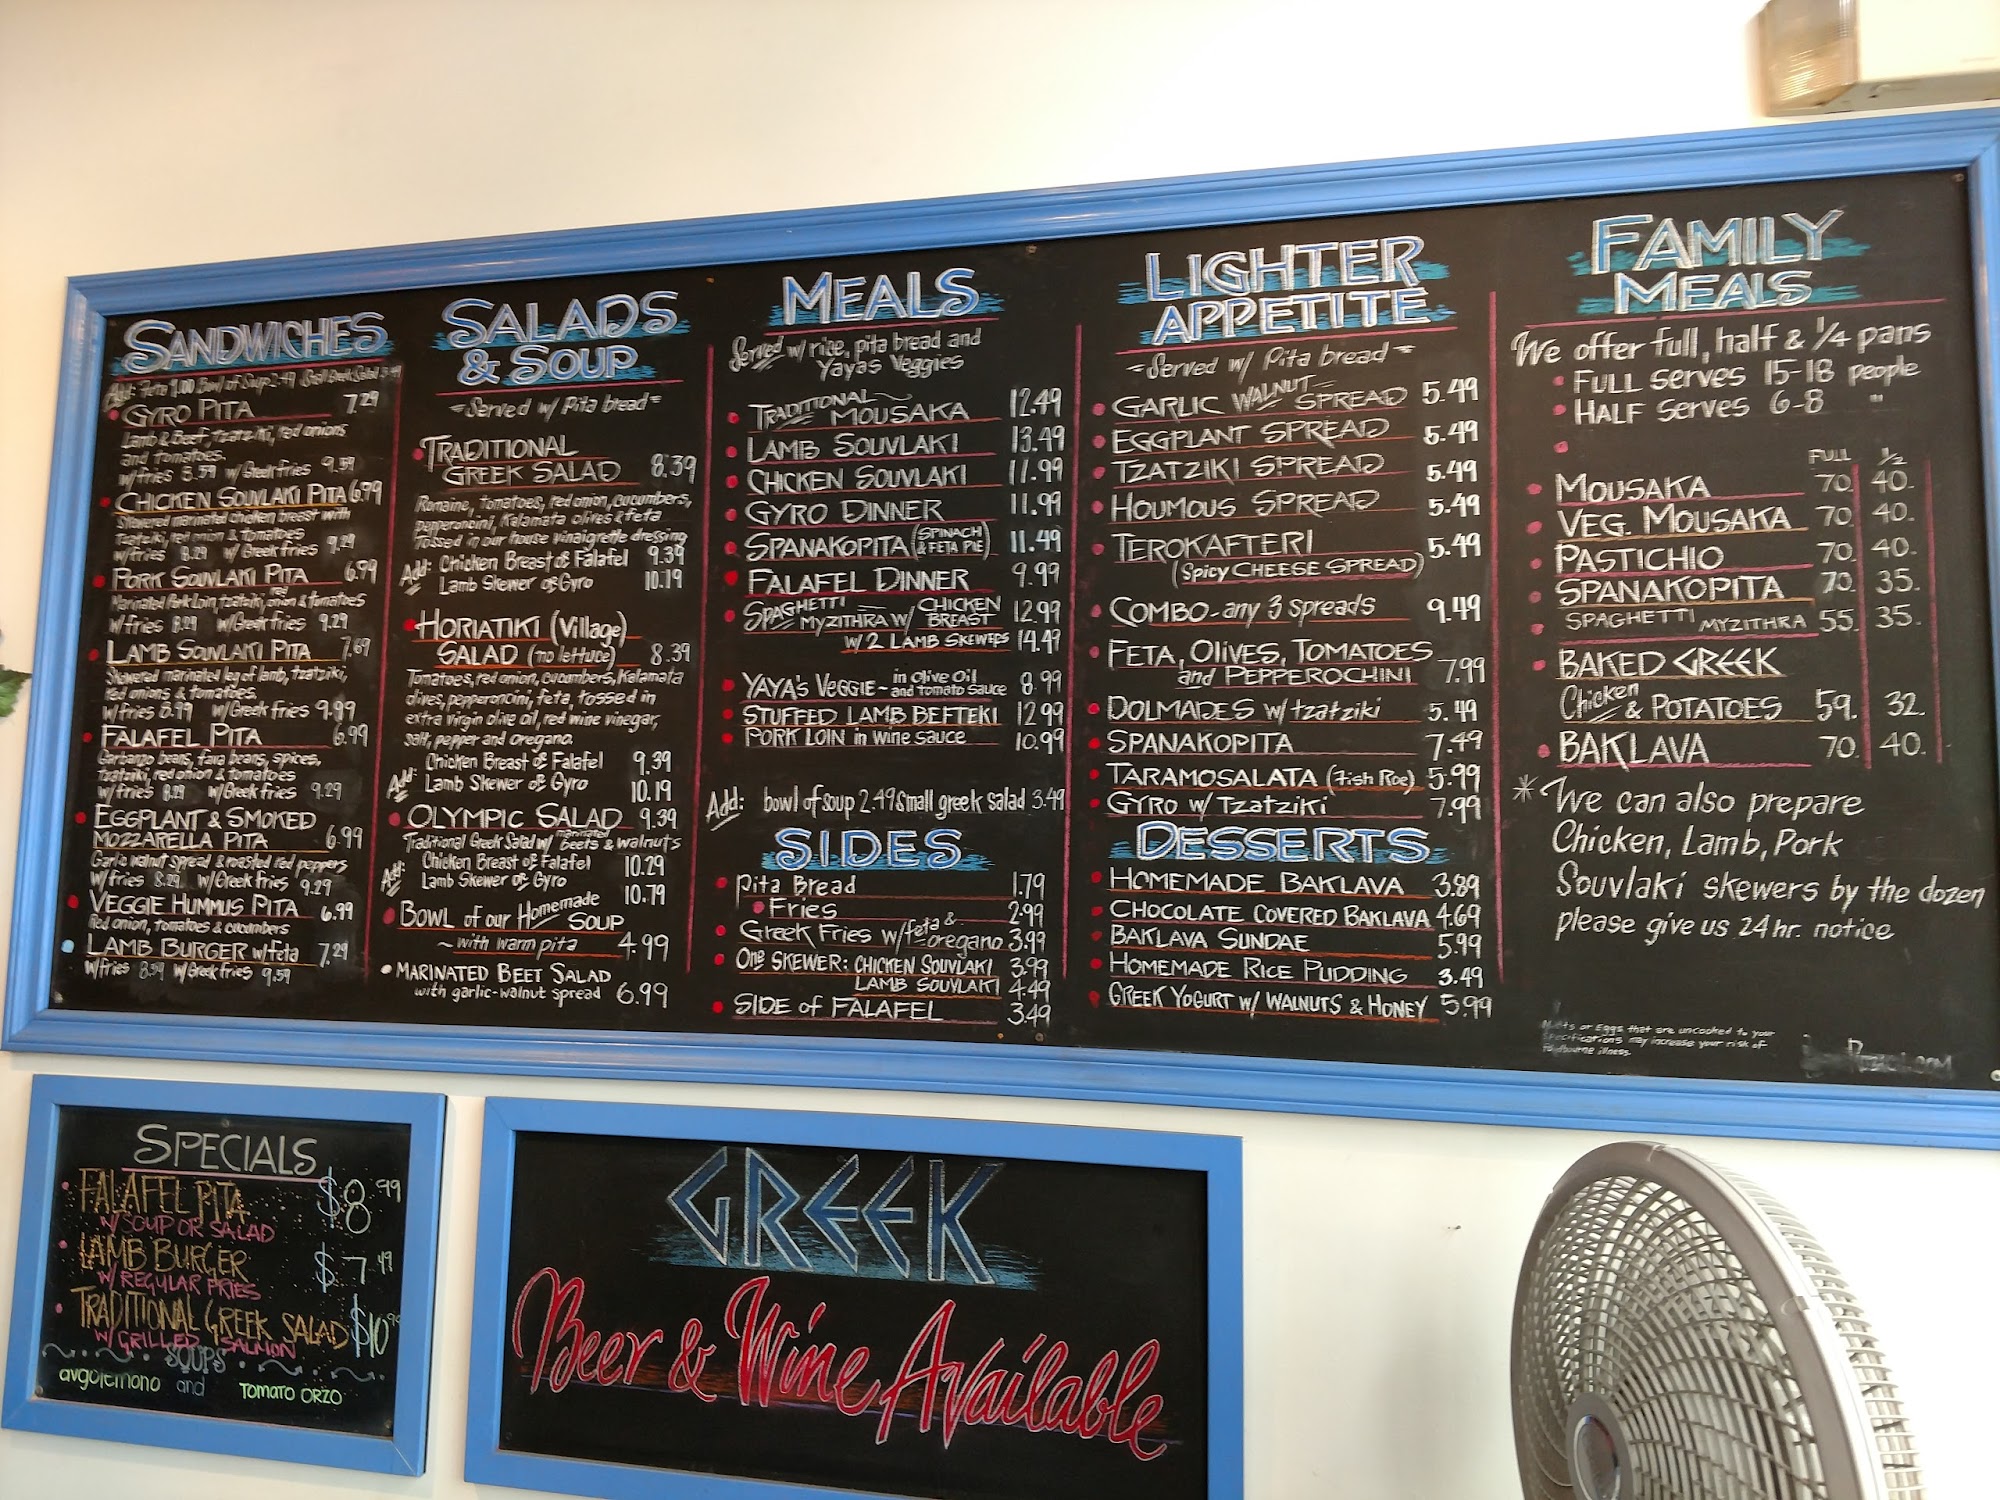 SANDWICHES
Add: Feta 1.00 Bowl of Soup 2.49 Small Greek Salad 3.49
GYRO PITA 7.29
Lamb & Beef, tzatziki, red onions
and tomatoes.
w/fries 8.59 w/Greek fries 9.59
CHICKEN SOUVLAKI PITA 6.99
Skewered marinated chicken breast with
tzatziki, red onion & tomatoes
w/fries 8.29 w/Greek fries 9.29
PORK SOUVLAKI PITA 6.99
Marinated Pork Loin, tzatziki, red onion & tomatoes
w/fries 8.29 w/Greek fries 9.29
LAMB SOUVLAKI PITA 7.69
Skewered marinated leg of lamb, tzatziki,
red onions & tomatoes.
w/fries 8.99 w/Greek fries 9.99
FALAFEL PITA 6.99
Garbanzo beans, fava beans, spices,
tzatziki, red onion & tomatoes
w/fries 8.29 w/Greek fries 9.29
EGGPLANT & SMOKED
MOZZARELLA PITA 6.99
Garlic walnut spread & roasted red peppers
w/fries 8.29 w/Greek fries 9.29
VEGGIE HUMMUS PITA 6.99
Red onion, tomatoes & cucumbers
LAMB BURGER w/feta 7.29
w/fries 8.59 w/Greek fries 9.59
SALADS
& SOUP
Served w/ Pita bread
TRADITIONAL
GREEK SALAD 8.39
Romaine, tomatoes, red onion, cucumbers,
pepperoncini, Kalamata olives & feta
tossed in our house vinaigrette dressing
Add: Chicken Breast or Falafel 9.39
Lamb Skewer or Gyro 10.19
HORIATIKI (Village)
SALAD (no lettuce) 8.39
Tomatoes, red onion, cucumbers, Kalamata
olives, pepperoncini, feta, tossed in
extra virgin olive oil, red wine vinegar,
salt, pepper and oregano.
Add: Chicken Breast or Falafel 9.39
Lamb Skewer or Gyro 10.19
OLYMPIC SALAD 9.39
Traditional Greek Salad w/ marinated beets & walnuts
Add: Chicken Breast or Falafel 10.29
Lamb Skewer or Gyro 10.79
BOWL OF OUR Homemade SOUP
~ with warm pita 4.99
• MARINATED BEET SALAD
with garlic-walnut spread 6.99
MEALS
Served w/ rice, pita bread and
Yayas Veggies
TRADITIONAL MOUSAKA 12.49
LAMB SOUVLAKI 13.49
CHICKEN SOUVLAKI 11.99
GYRO DINNER 11.99
SPANAKOPITA (SPINACH & FETA PIE) 11.49
FALAFEL DINNER 9.99
SPAGHETTI MYZITHRA w/ CHICKEN BREAST 12.99
w/ 2 LAMB SKEWERS 14.49
YAYA'S VEGGIE ~ in Olive Oil and tomato sauce 8.99
STUFFED LAMB BEFTEKI 12.99
PORK LOIN in wine sauce 10.99
Add: bowl of soup 2.49 small greek salad 3.49
SIDES
Pita Bread 1.79
Fries 2.99
Greek Fries w/ feta & oregano 3.99
One SKEWER: CHICKEN SOUVLAKI 3.99
LAMB SOUVLAKI 4.49
SIDE of FALAFEL 3.49
LIGHTER
APPETITE
Served w/ Pita bread
GARLIC WALNUT SPREAD 5.49
EGGPLANT SPREAD 5.49
TZATZIKI SPREAD 5.49
HOUMOUS SPREAD 5.49
TEROKAFTERI 5.49
(Spicy CHEESE SPREAD)
COMBO - any 3 spreads 9.49
FETA, Olives, TOMATOES
and PEPPEROCHINI 7.99
DOLMADES w/ tzatziki 5.49
SPANAKOPITA 7.49
TARAMOSALATA (Fish Roe) 5.99
GYRO w/ TZATZIKI 7.99
DESSERTS
HOMEMADE BAKLAVA 3.89
CHOCOLATE COVERED BAKLAVA 4.69
BAKLAVA SUNDAE 5.99
HOMEMADE RICE PUDDING 3.49
GREEK YOGURT w/ WALNUTS & HONEY 5.99
FAMILY
MEALS
We offer full, half & 1/4 pans
• FULL serves 15-18 people
• HALF serves 6-8 "
FULL 1/2
MOUSAKA 70. 40.
VEG. MOUSAKA 70. 40.
PASTICHIO 70. 40.
SPANAKOPITA 70. 35.
SPAGHETTI MYZITHRA 55. 35.
BAKED GREEK
Chicken & POTATOES 59. 32.
BAKLAVA 70. 40.
* We can also prepare
Chicken, Lamb, Pork
Souvlaki skewers by the dozen
please give us 24 hr. notice
Meats or Eggs that are uncooked to your
specifications may increase your risk of
foodbourne illness.
SPECIALS
• FALAFEL PITA $8.99
W/ SOUP OR SALAD
• LAMB BURGER $7.49
W/ REGULAR FRIES
• TRADITIONAL GREEK SALAD $10.99
W/ GRILLED SALMON
SOUPS
avgolemono and TOMATO ORZO
GREEK
Beer & Wine Available